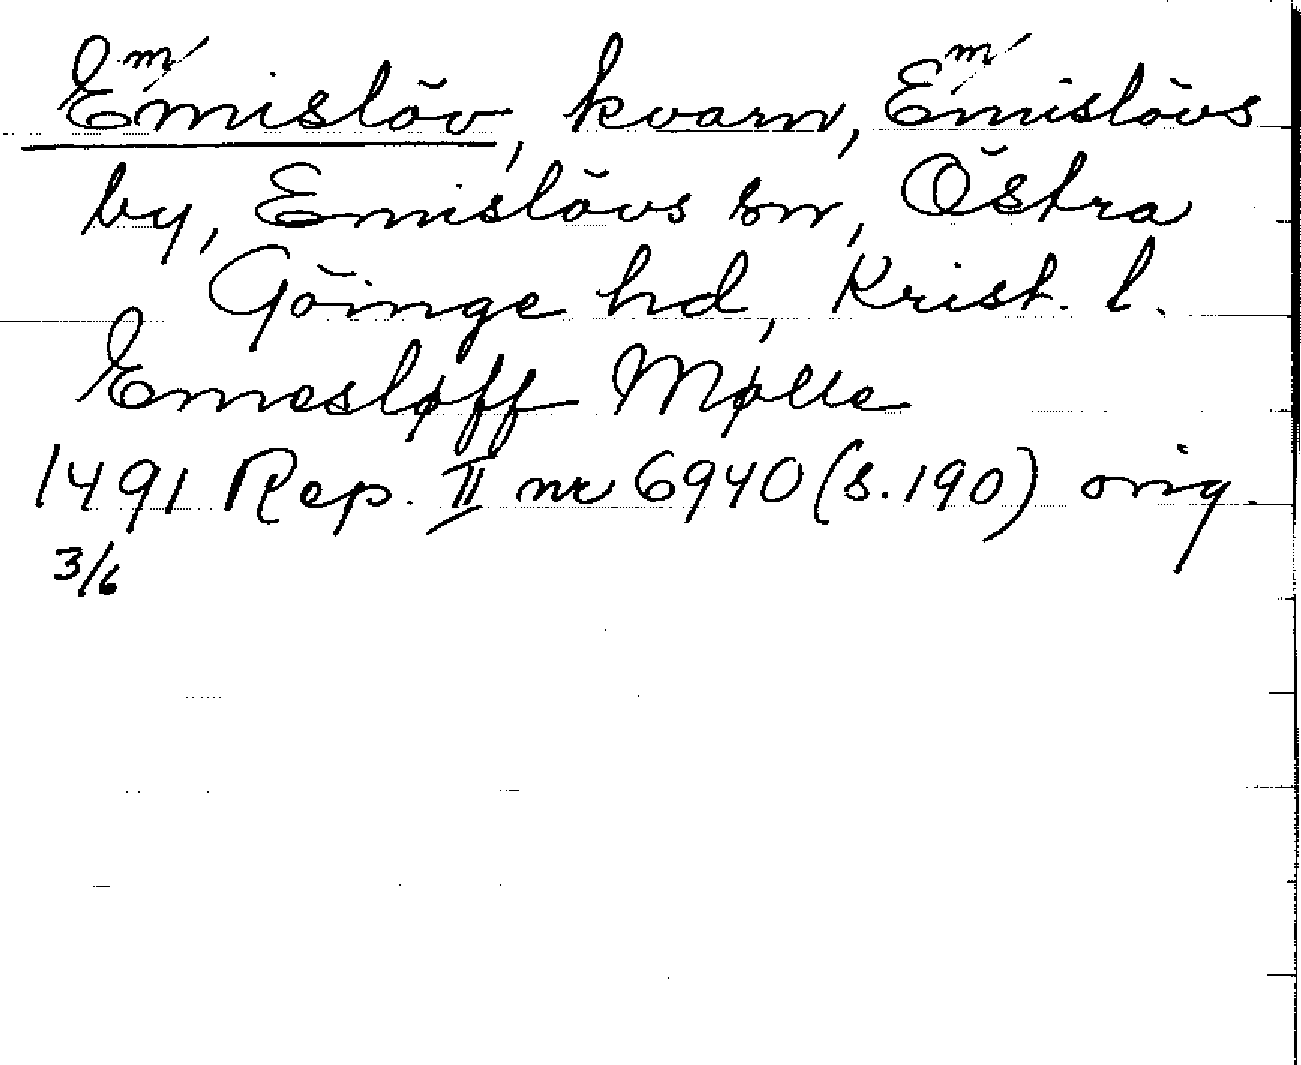 Emmislöv, kvarn, Emmislövs
by, Emislövs sn, Östra
Göinge hd, Krist. l.
Emesløff Mølle
1491 Rep. II nr 6940 (s. 190) orig.
3/6